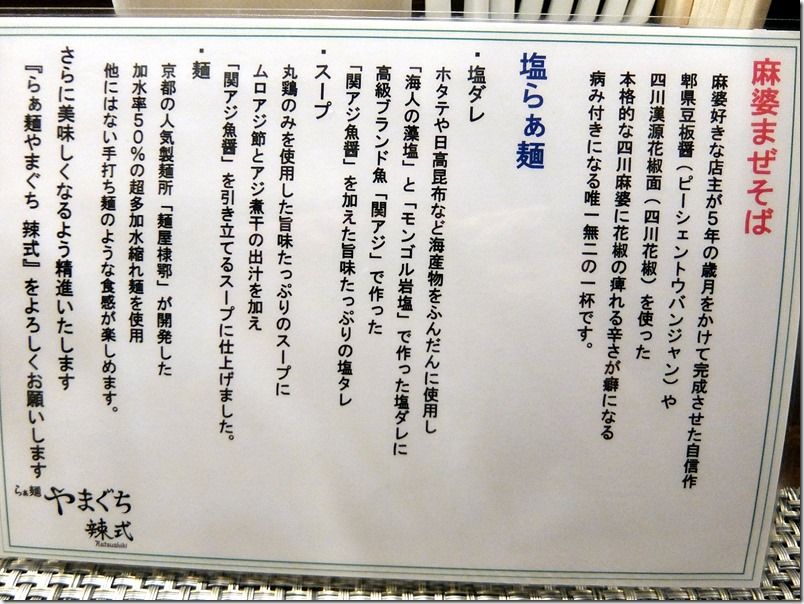 麻婆まぜそば
麻婆好きな店主が5年の歳月をかけて完成させた自信作
郫県豆板醤（ピーシェントウバンジャン）や
四川漢源花椒面（四川花椒）を使った
本格的な四川麻婆に花椒の痺れる辛さが癖になる
病み付きになる唯一無二の一杯です。
塩らぁ麺
・塩ダレ
ホタテや日高昆布など海産物をふんだんに使用し
「海人の藻塩」と「モンゴル岩塩」で作った塩ダレに
高級ブランド魚「関アジ」で作った
「関アジ魚醤」を加えた旨味たっぷりの塩タレ
・スープ
丸鶏のみを使用した旨味たっぷりのスープに
ムロアジ節とアジ煮干の出汁を加え
「関アジ魚醤」を引き立てるスープに仕上げました。
・麺
京都の人気製麺所「麺屋棣鄂」が開発した
加水率50％の超多加水縮れ麺を使用
他にはない手打ち麺のような食感が楽しめます。
さらに美味しくなるよう精進いたします
『らぁ麺やまぐち 辣式』をよろしくお願いします
らぁ麺
やまぐち
辣式
Ratsushiki